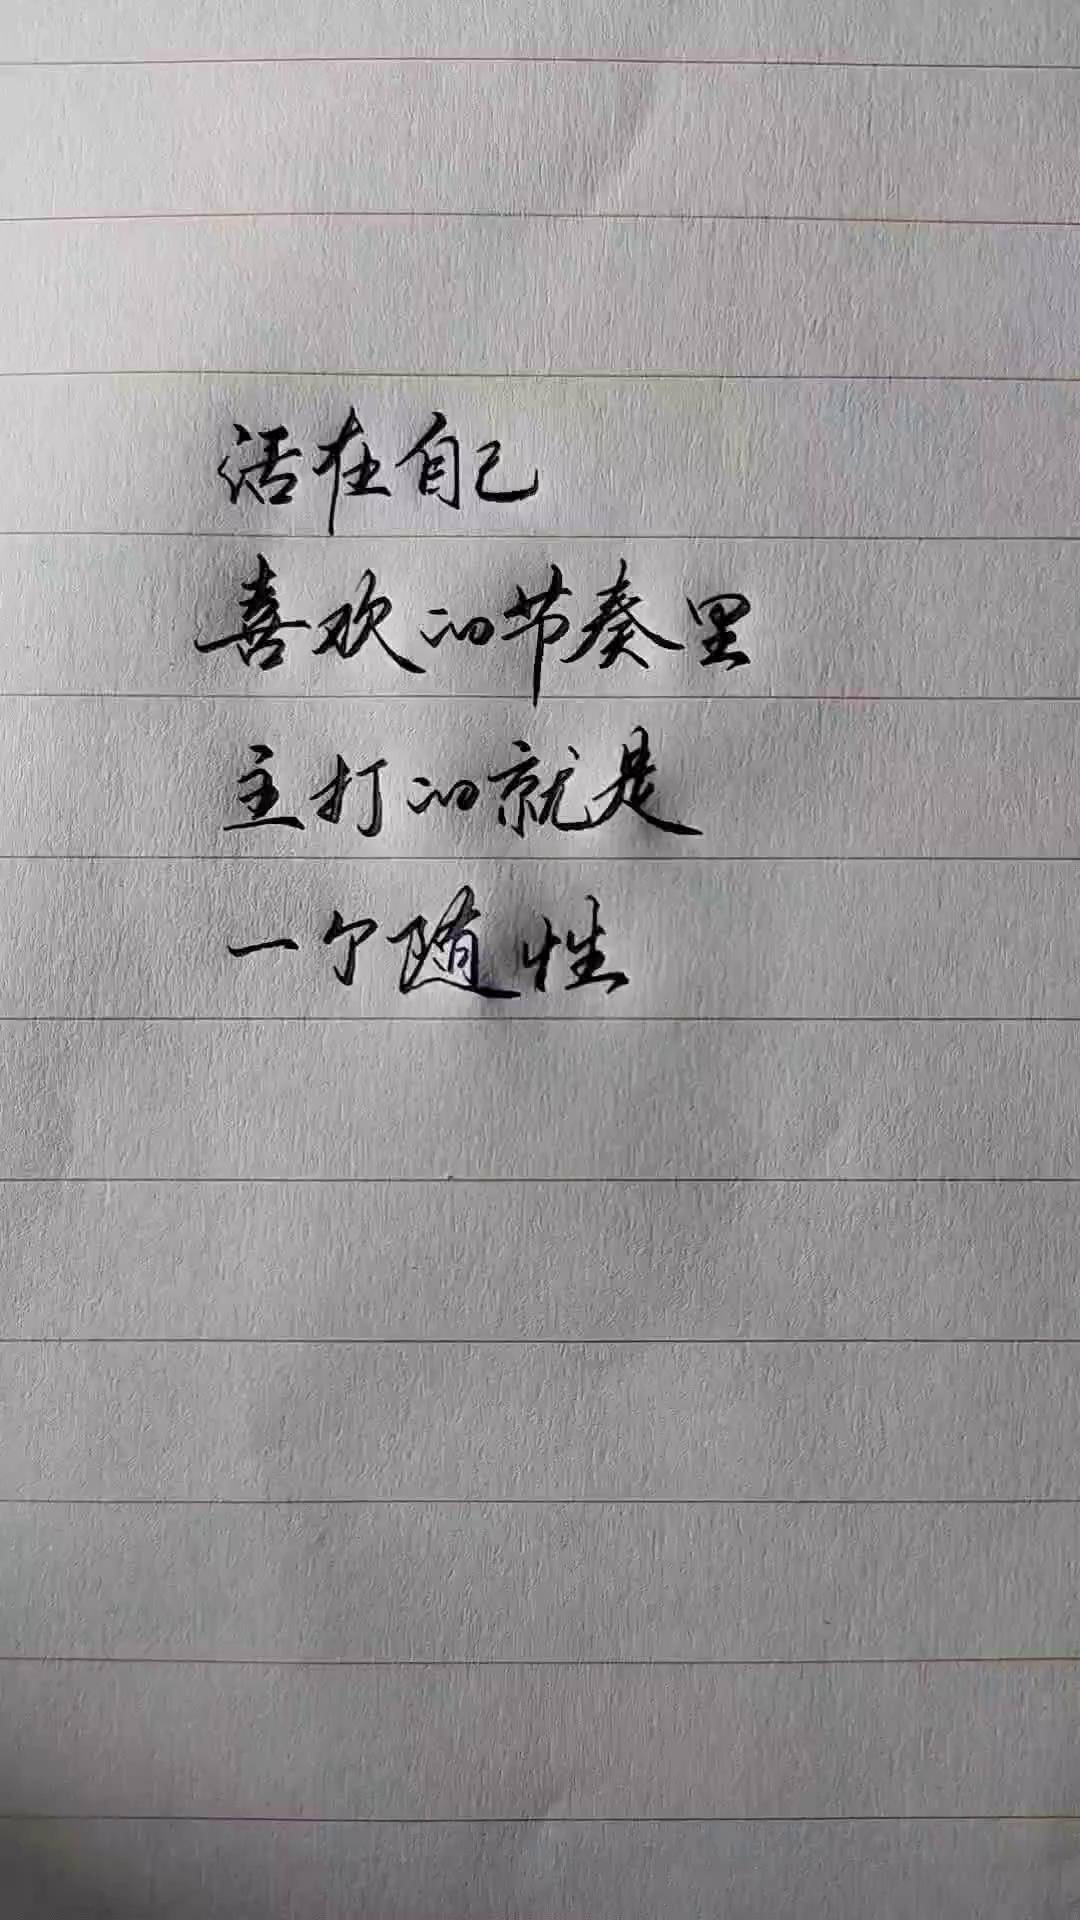 活在自己
喜欢的节奏里
主打的就是
一个随性